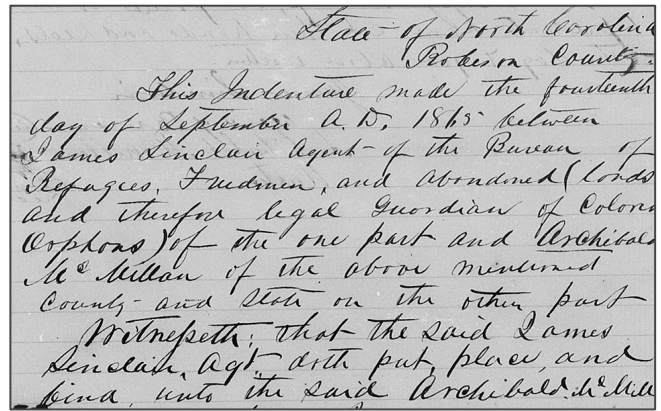 State of North Carolina
Robeson County.
This Indenture made the fourteenth
day of September A.D. 1865 between
James Sinclair Agent of the Bureau of
Refugees, Freedmen, and Abandoned (Lands
and therefore legal Guardian of Colored
Orphans) of the one part and Archibald
Mc Millan of the above mentioned
County and State on the other part
Witnesseth; that the said James
Sinclair, Agt. doth put, place, and
bind, unto the said Archibald Mc Mill